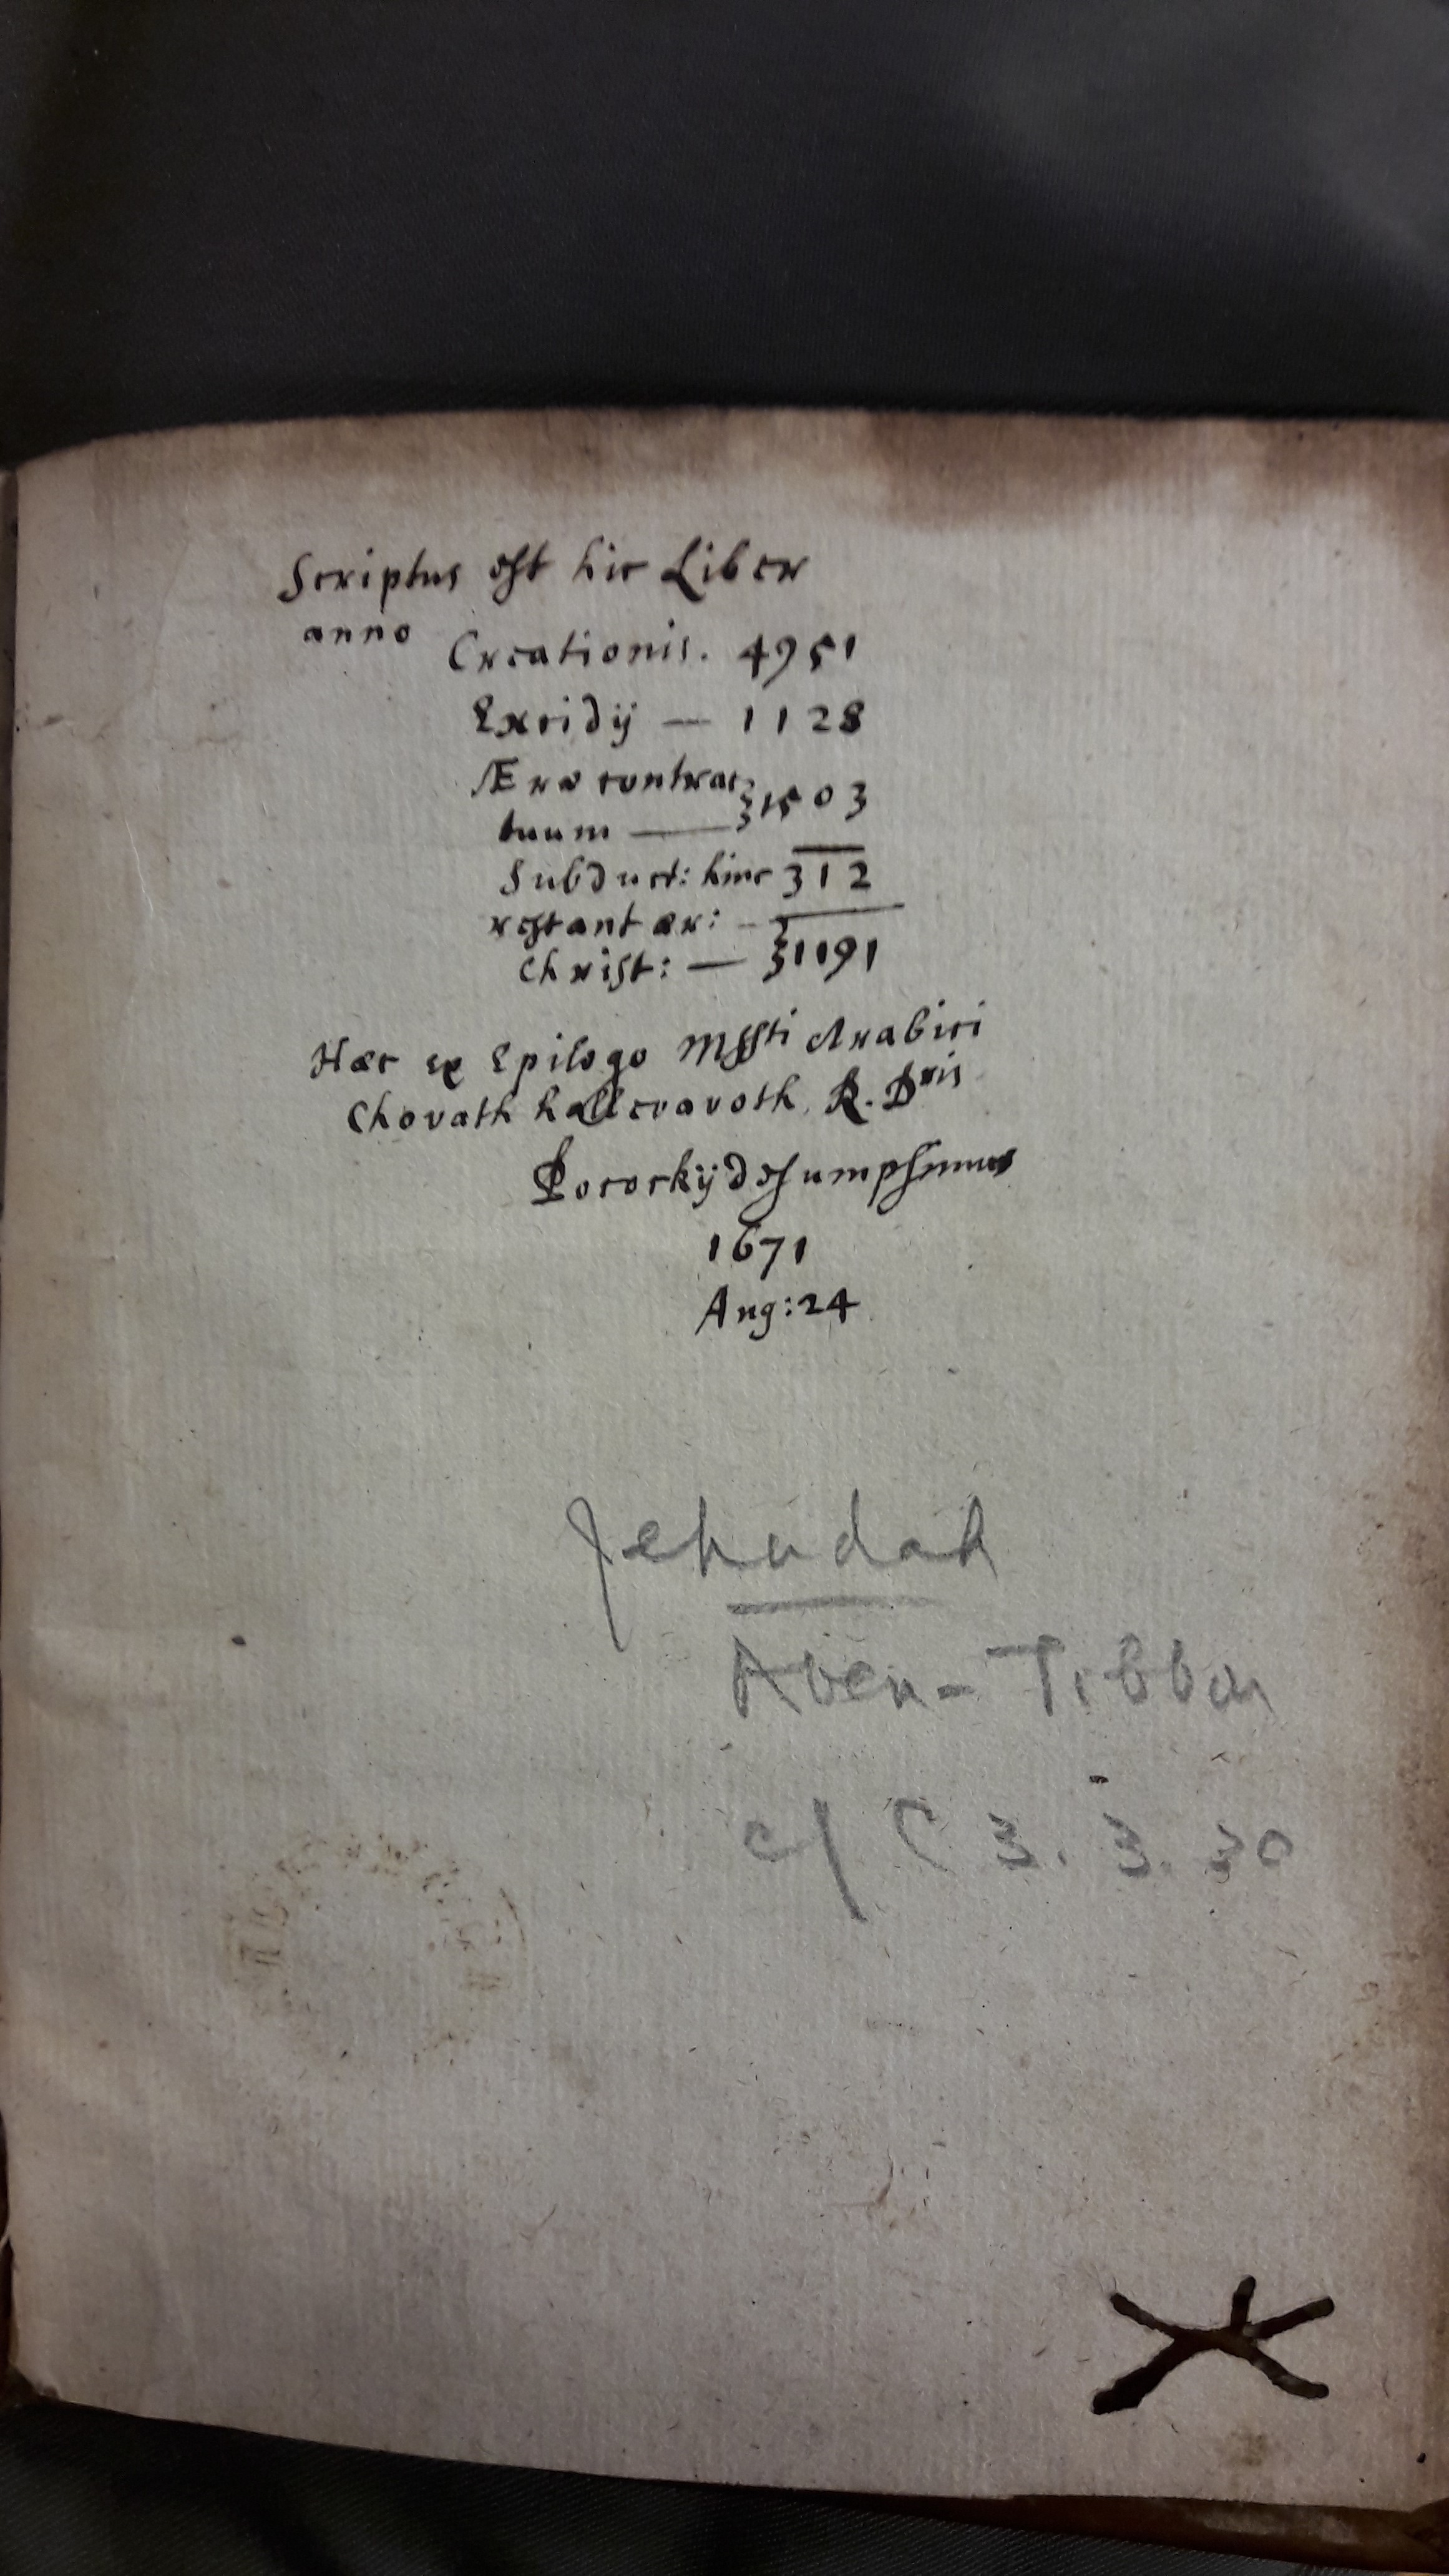 Scriptus est hic Liber
anno Creationis. 4951
Excidij — 1128
Æræ contrac
tuum — 1503
Subduct: hinc 312
restant ær: -
Christ: — 1191
Hæc ex Epilogo Mssti Arabici
Chovath hallevavoth R. Dris
Pocockij desumpsimus
1671
Aug: 24
Jehudah
Aben-Tibbon
c/ C 3. 3. 30